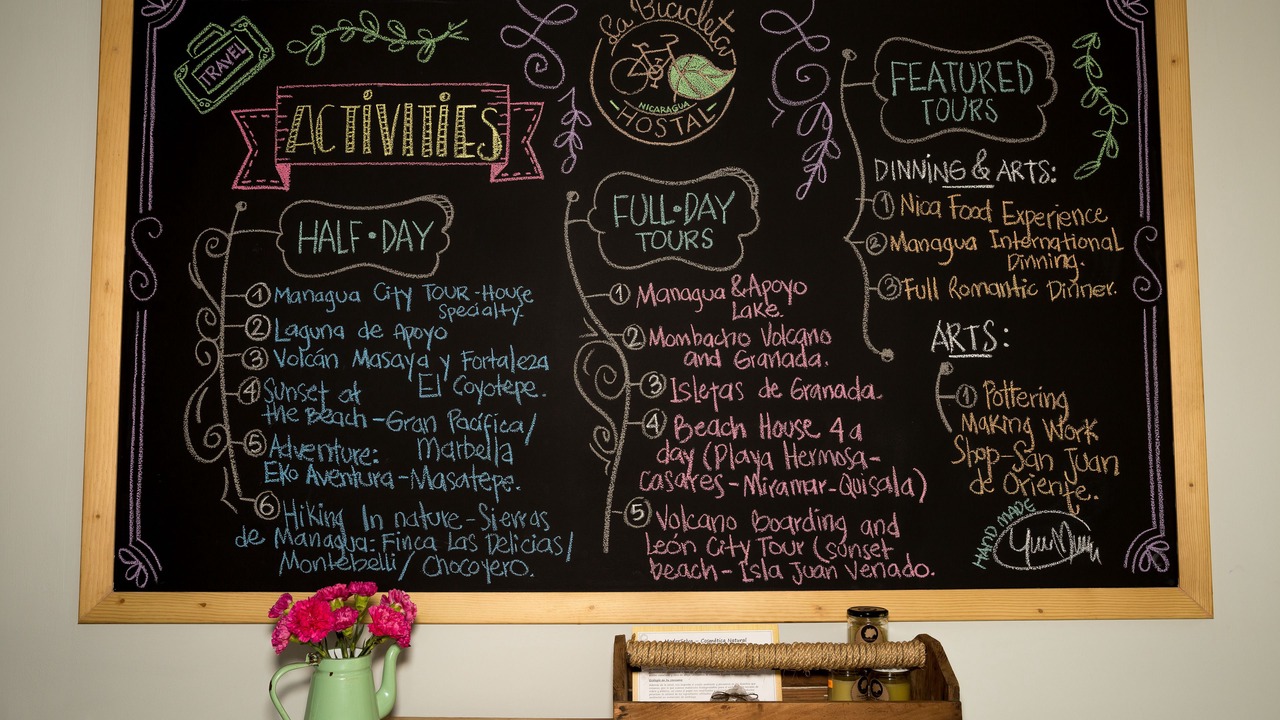 TRAVEL
ACTIVITIES
La Bicicleta
NICARAGUA
HOSTAL
HALF·DAY
1 Managua City TOUR-House
Specialty.
2 Laguna de Apoyo
3 Volcán Masaya y Fortaleza
El Coyotepe.
4 Sunset at
the Beach-Gran Pacifica/
Marbella
5 Adventure:
Eko Aventura-Masatepe.
6 Hiking In nature-Sierras
de Managua: Finca Las Delicias/
Montebelli/ Chocoyero.
FULL·DAY
TOURS
1 Managua & Apoyo
Lake.
2 Mombacho Volcano
and Granada.
3 Isletas de Granada.
4 Beach House 4 a
day (Playa Hermosa-
Casares-Miramar-Quisala)
5 Volcano Boarding and
León City Tour (sunset
beach-Isla Juan Venado.
FEATURED
TOURS
DINNING & ARTS:
1 Nica Food Experience
2 Managua International
Dinning.
3 Full Romantic Dinner.
ARTS:
1 Pottering
Making Work
Shop-San Juan
de Oriente.
HAND MADE
MaderSelva - Cosmética Natural